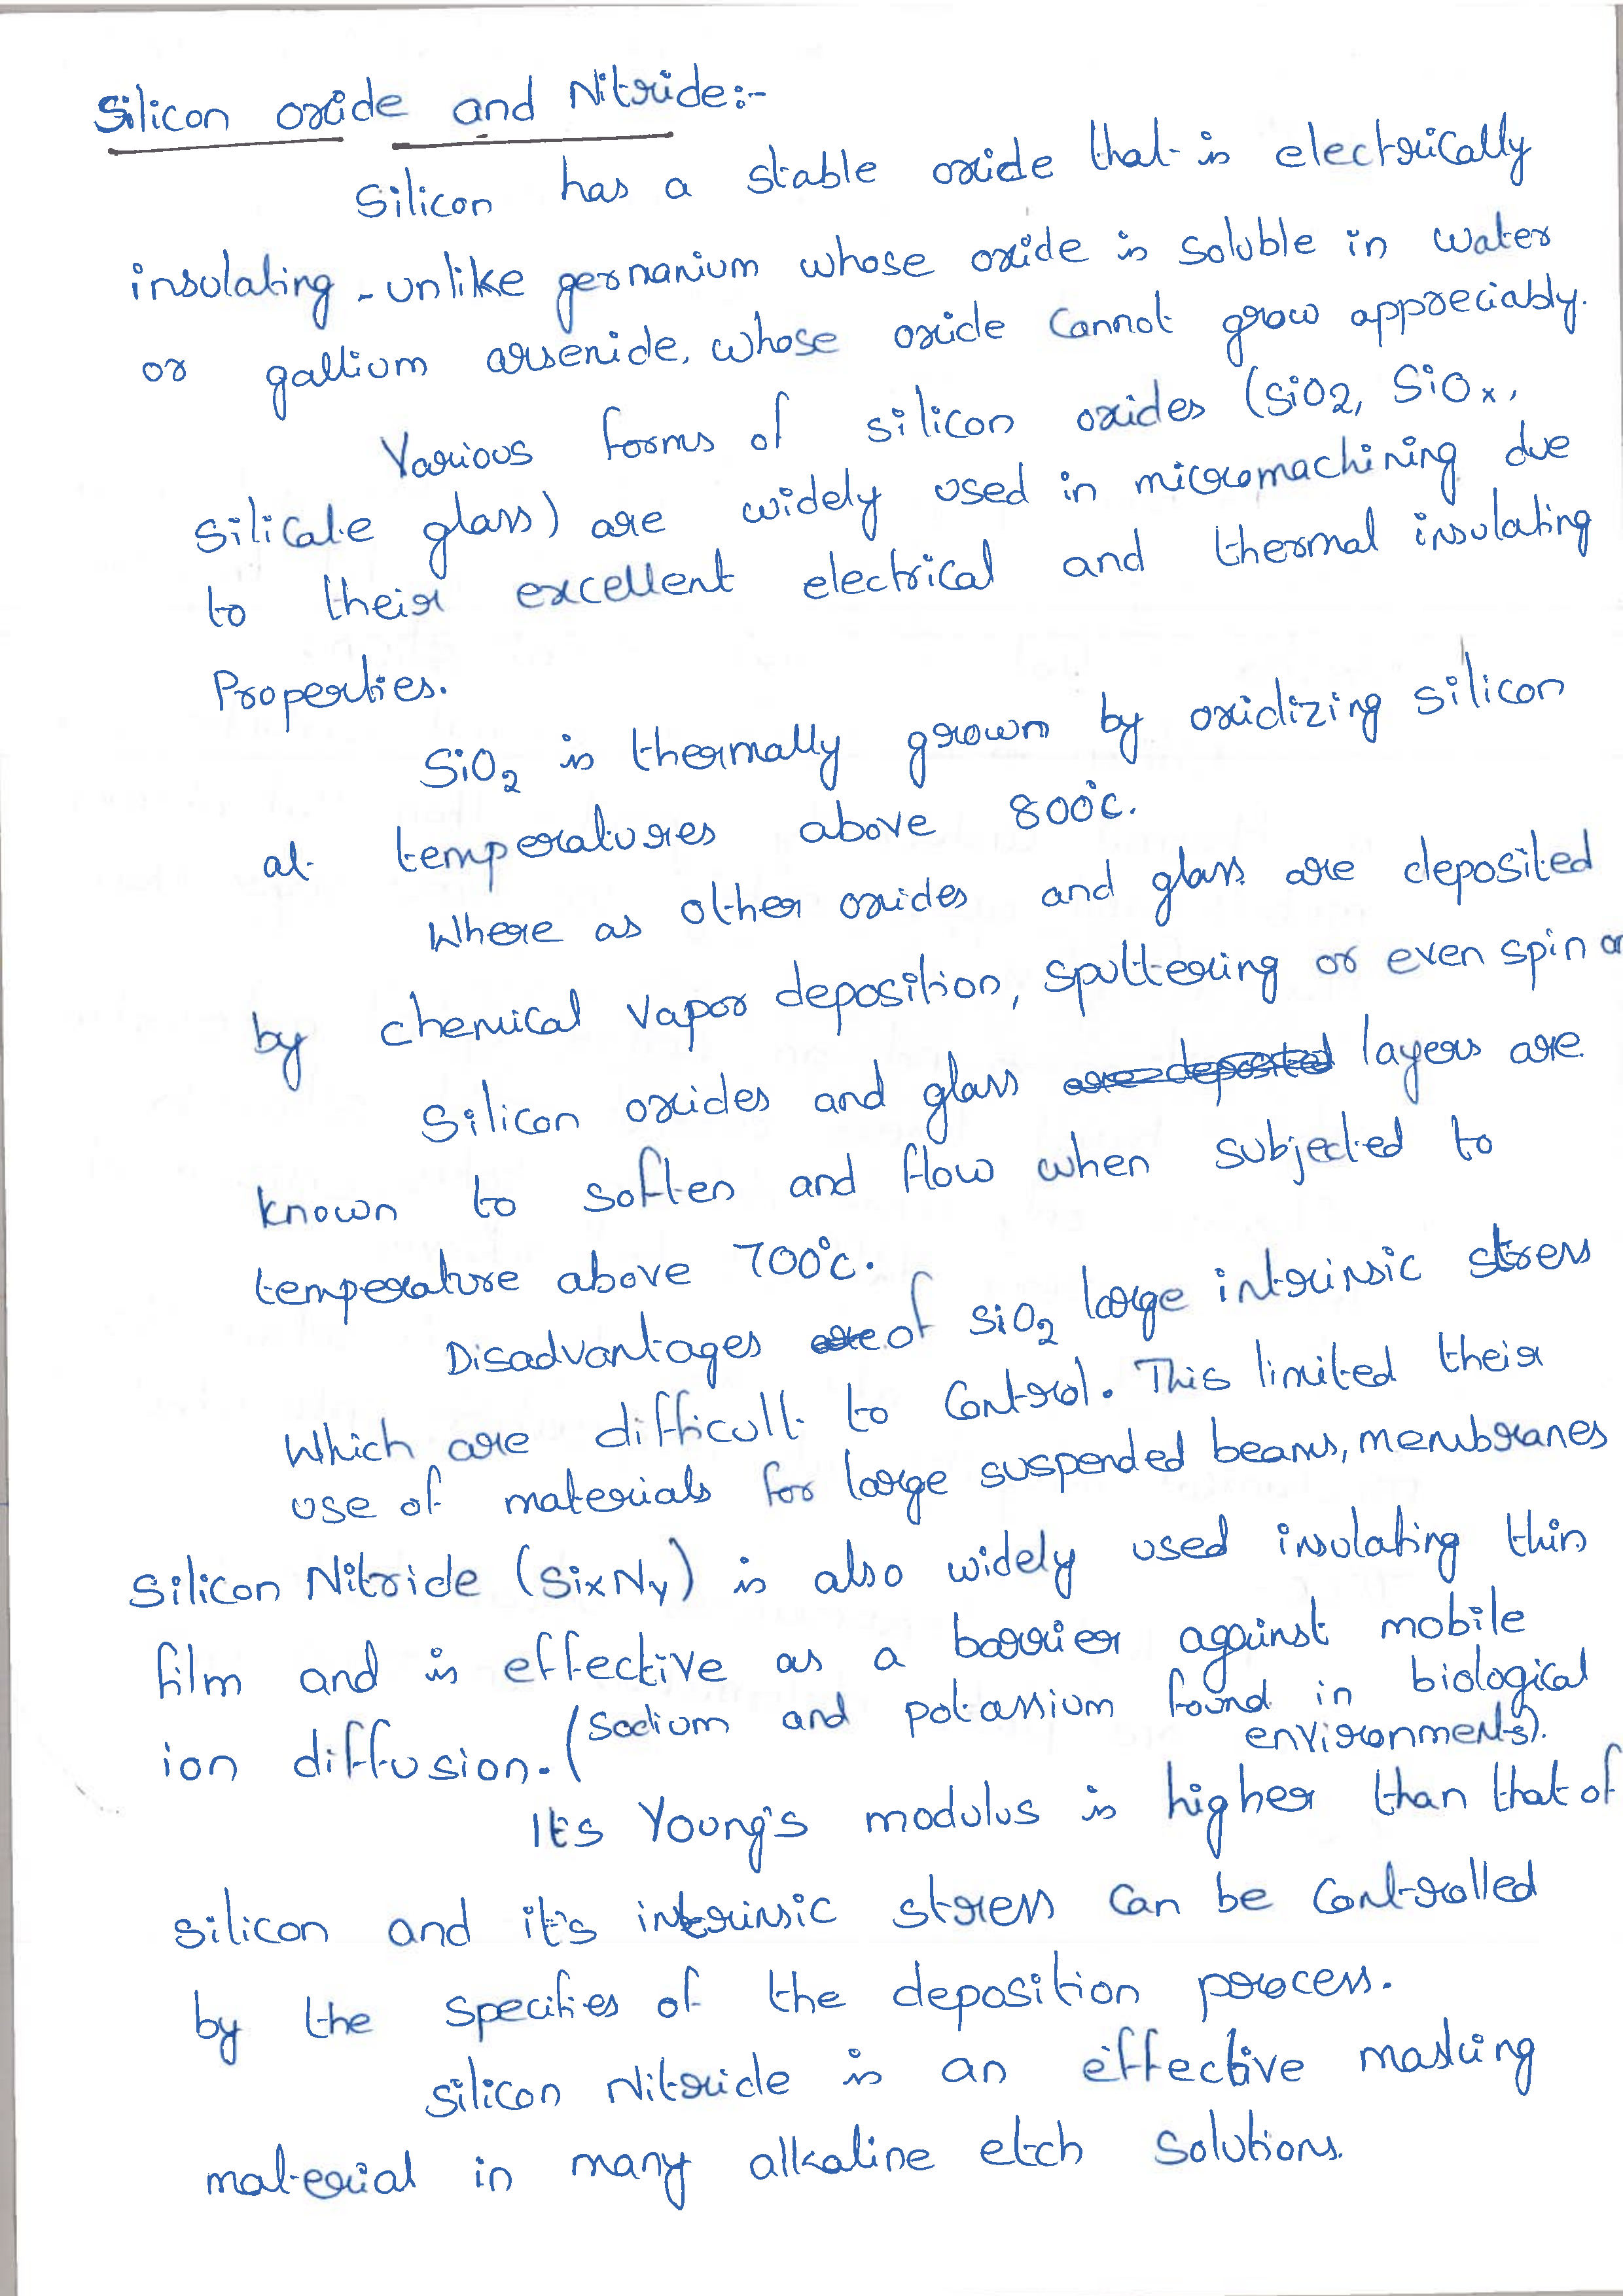 Silicon oxide and Nitride:-
Silicon has a stable oxide that is electrically
insulating - unlike gernanium whose oxide is soluble in water
or gallium arsenide, whose oxide cannot grow appreciably.
Various forms of silicon oxides (SiO2, SiOx,
silicate glass) are widely used in micromachining due
to their excellent electrical and thermal insulating
Properties.
SiO₂ is thermally grown by oxidizing silicon
at temperatures above 800°c.
Where as other oxides and glass are deposited
by chemical vapor deposition, sputtering or even spin on
Silicon oxides and glass ~~are deposited~~ layers are
known to soften and flow when subjected to
temperature above 700°c.
Disadvantages ~~are~~ of SiO₂ large intrinsic stress
Which are difficult to Control. This limited their
use of materials for large suspended beams, membranes
Silicon Nitride (SixNy) is also widely used insulating thin
film and is effective as a barrier against mobile
ion diffusion. (Sodium and potassium found in biological
environments).
It's Young's modulus is higher than that of
silicon and it's intrinsic stress can be controlled
by the specifies of the deposition process.
silicon Nitride is an effective masking
material in many alkaline etch solutions.